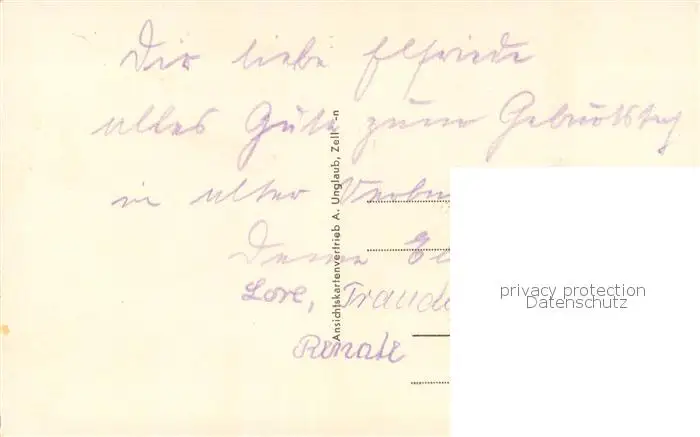 Dir liebe Elfriede
alles Gute zum Geburtstag
in alter
Deine
Lore,
Renate
Ansichtskartenvertrieb A. Unglaub, Zell
privacy protection
Datenschutz